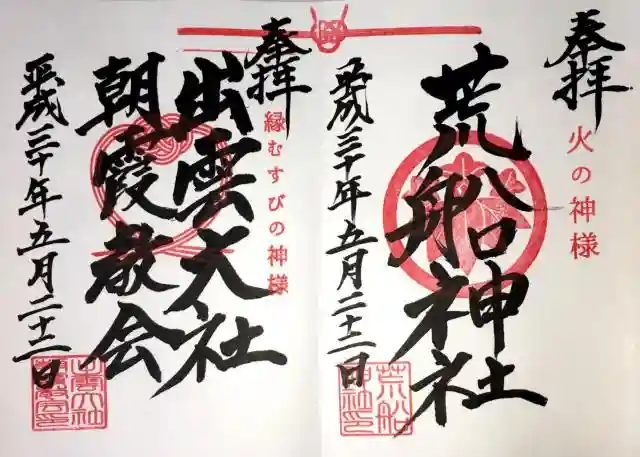 奉拝
火の神様
荒船神社
平成三十年五月二十二日
荒船
神社印
奉拝
縁むすびの神様
出雲大社
朝霞教会
平成三十年五月二十二日